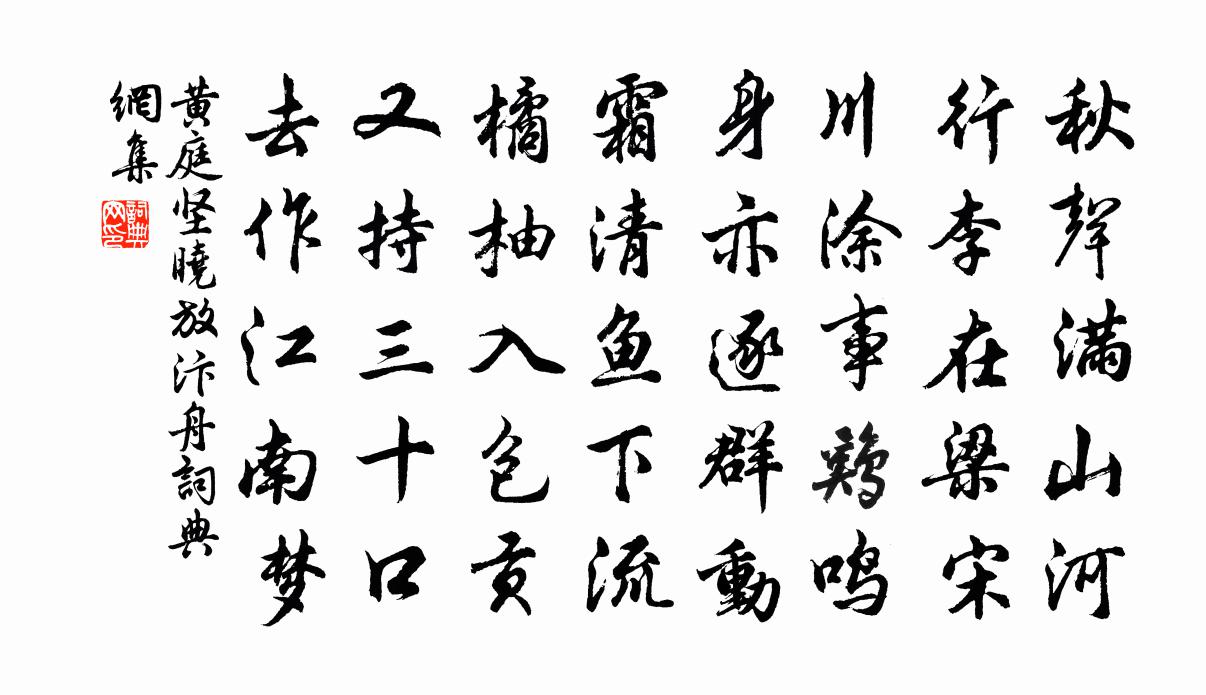 秋聲满山河
行李在梁宋
川涂事鷄鸣
身亦逐群動
霜清鱼下流
橘柚入包贡
又持三十口
去作江南梦
黄庭坚曉放汴舟詞典
網集
詞典
网印